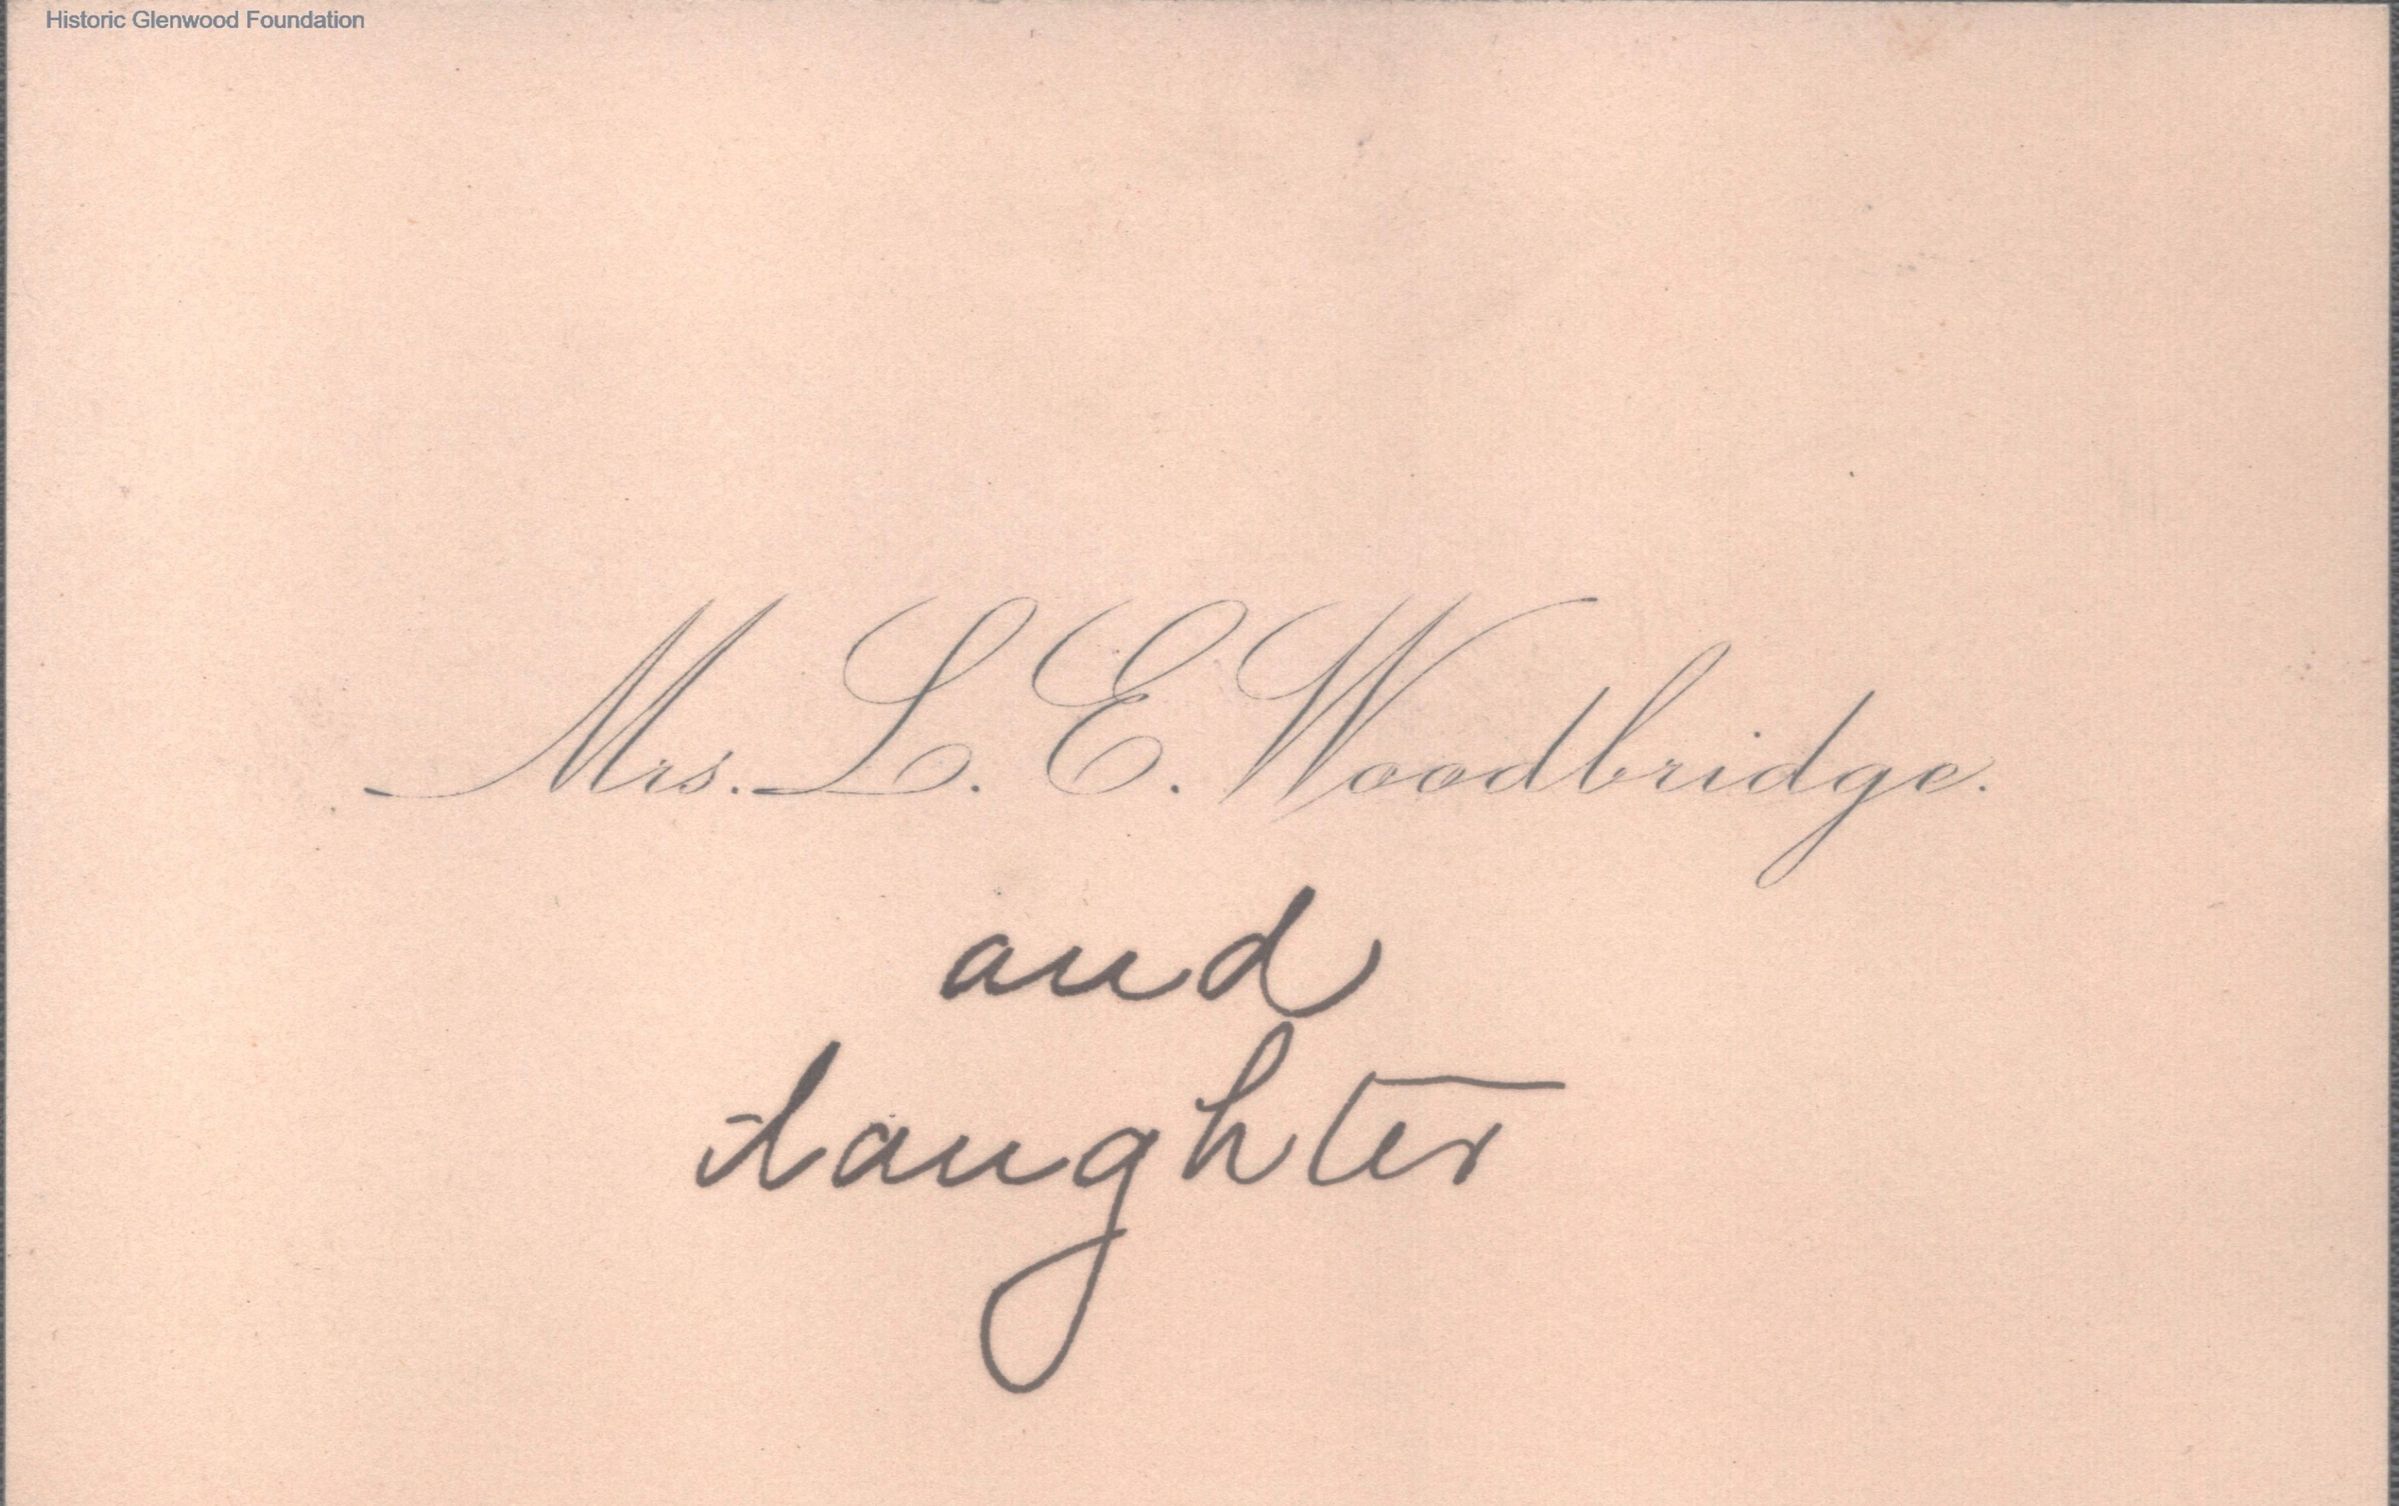 Historic Glenwood Foundation
Mrs. L. E. Woodbridge.
and
daughter